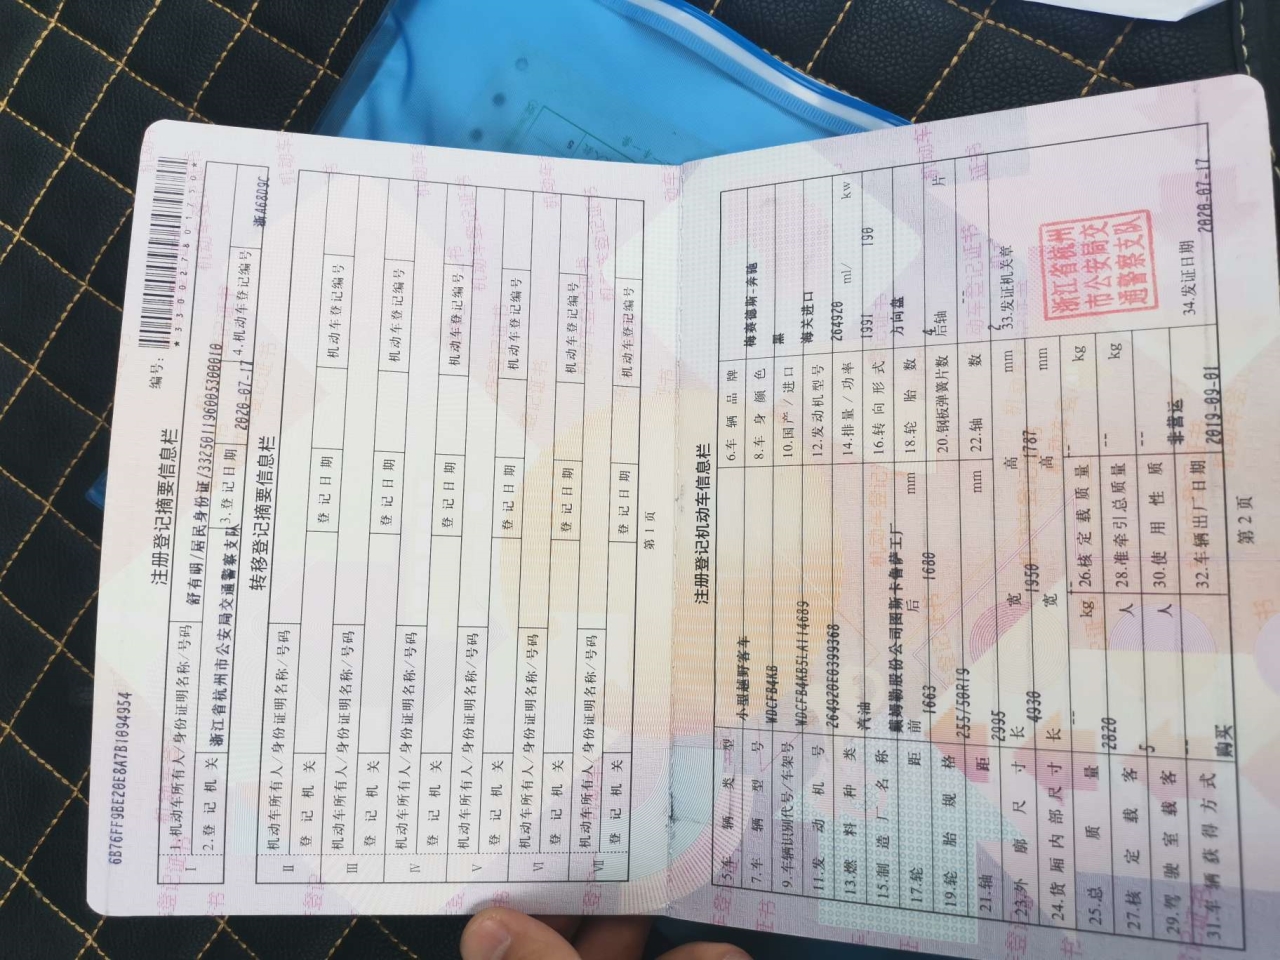 6B76FF9BE20E8A7B1094954
注册登记摘要信息栏
编号:
*330027801770*
Ⅰ
1.机动车所有人/身份证明名称/号码 舒有明/居民身份证/332501196005300010
2.登记机关 浙江省杭州市公安局交通警察支队 3.登记日期 2020-07-17 4.机动车登记编号 浙A6809C
转移登记摘要信息栏
Ⅱ
机动车所有人/身份证明名称/号码
登记机关 登记日期 机动车登记编号
Ⅲ
机动车所有人/身份证明名称/号码
登记机关 登记日期 机动车登记编号
Ⅳ
机动车所有人/身份证明名称/号码
登记机关 登记日期 机动车登记编号
Ⅴ
机动车所有人/身份证明名称/号码
登记机关 登记日期 机动车登记编号
Ⅵ
机动车所有人/身份证明名称/号码
登记机关 登记日期 机动车登记编号
Ⅶ
机动车所有人/身份证明名称/号码
登记机关 登记日期 机动车登记编号
第 1 页
注册登记机动车信息栏
5.车辆类型 小型越野客车 6.车辆品牌 梅赛德斯-奔驰
7.车辆型号 WDCFB4KB 8.车身颜色 黑
9.车辆识别代号/车架号 WDCFB4KB5LA114689 10.国产/进口 海关进口
11.发动机号 264920E0399368 12.发动机型号 264920
13.燃料种类 汽油 14.排量/功率 1991 ml/ 190 kw
15.制造厂名称 戴姆勒股份公司图斯卡鲁萨工厂 16.转向形式 方向盘
17.轮距 前 1663 后 1680 mm 18.轮胎数 4
19.轮胎规格 255/50R19 20.钢板弹簧片数 后轴 -- 片
21.轴距 2995 mm 22.轴数 2
23.外廓尺寸 长 4930 宽 1950 高 1787 mm
24.货厢内部尺寸 长 -- 宽 -- 高 -- mm
25.总质量 2820 kg 26.核定载质量 -- kg
27.核定载客 5 人 28.准牵引总质量 -- kg
29.驾驶室载客 -- 人 30.使用性质 非营运
31.车辆获得方式 购买 32.车辆出厂日期 2019-09-01
33.发证机关章
浙江省杭州
市公安局交
通警察支队
34.发证日期 2020-07-17
第 2 页